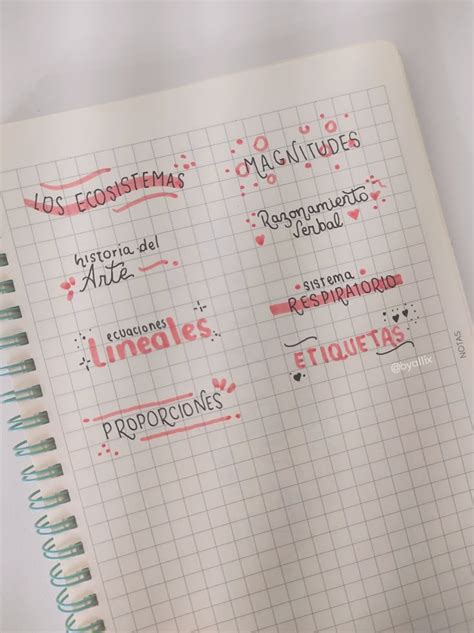 LOS ECOSISTEMAS
historia del
Arte
ecuaciones
Lineales
PROPORCIONES
MAGNITUDES
Razonamiento
Verbal
sistema
RESPIRATORIO
ETIQUETAS
@byallix
NOTAS